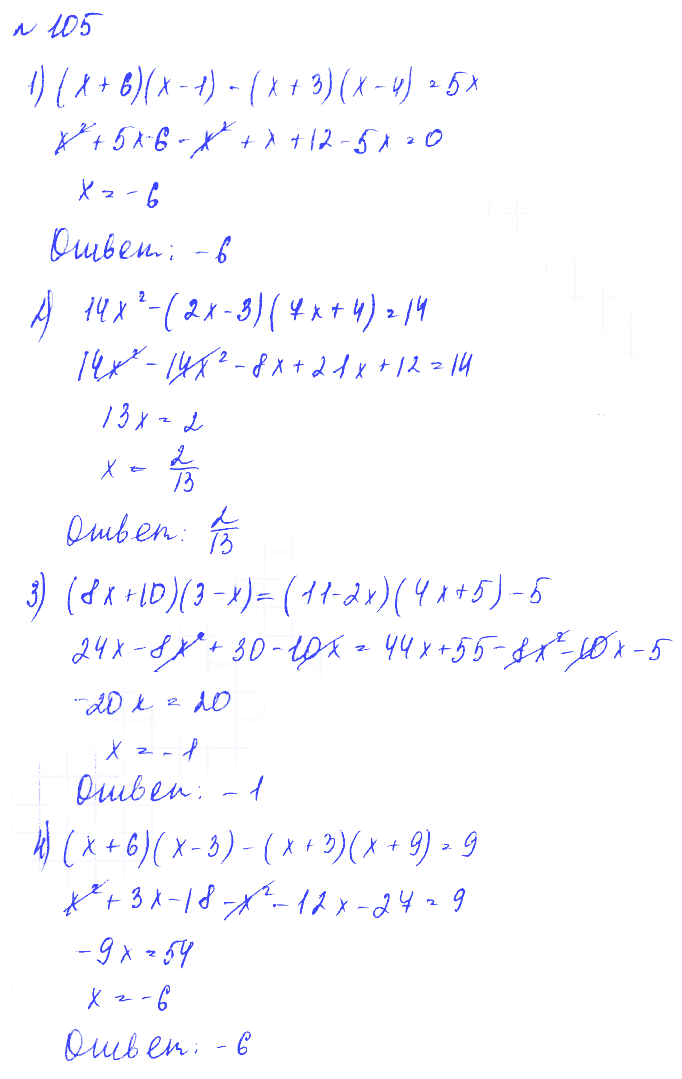 № 105
1) (x + 6)(x - 1) - (x + 3)(x - 4) = 5x
x² + 5x - 6 - x² + x + 12 - 5x = 0
x = - 6
Ответ: - 6
2) 14x² - (2x - 3)(7x + 4) = 14
14x² - 14x² - 8x + 21x + 12 = 14
13x = 2
x = 2/13
Ответ: 2/13
3) (8x + 10)(3 - x) = (11 - 2x)(4x + 5) - 5
24x - 8x² + 30 - 10x = 44x + 55 - 8x² - 10x - 5
-20x = 20
x = - 1
Ответ: - 1
4) (x + 6)(x - 3) - (x + 3)(x + 9) = 9
x² + 3x - 18 - x² - 12x - 27 = 9
-9x = 54
x = - 6
Ответ: - 6